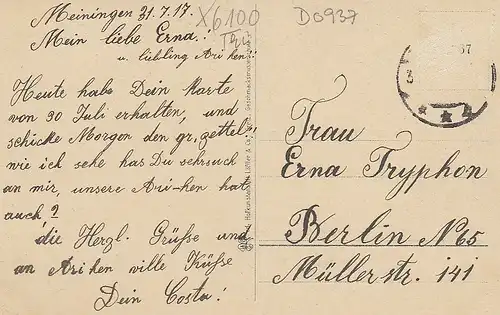 Meiningen 31.7.17.
X6100
Thür
D0937
Mein liebe Erna!
u. liebling Ari hen!!
67
Heute habe Dein Karte
von 30 Juli erhalten, und
schicke Morgen den gr. zettel!
wie ich sehe has Du sehrsuch
an mir, unsere Ari-hen hat
auch?
die Herzl. Grüsse und
an Ari hen ville Küsse
Dein Costa!
Frau
Erna Tryphon
Berlin N65
Müllerstr. 141